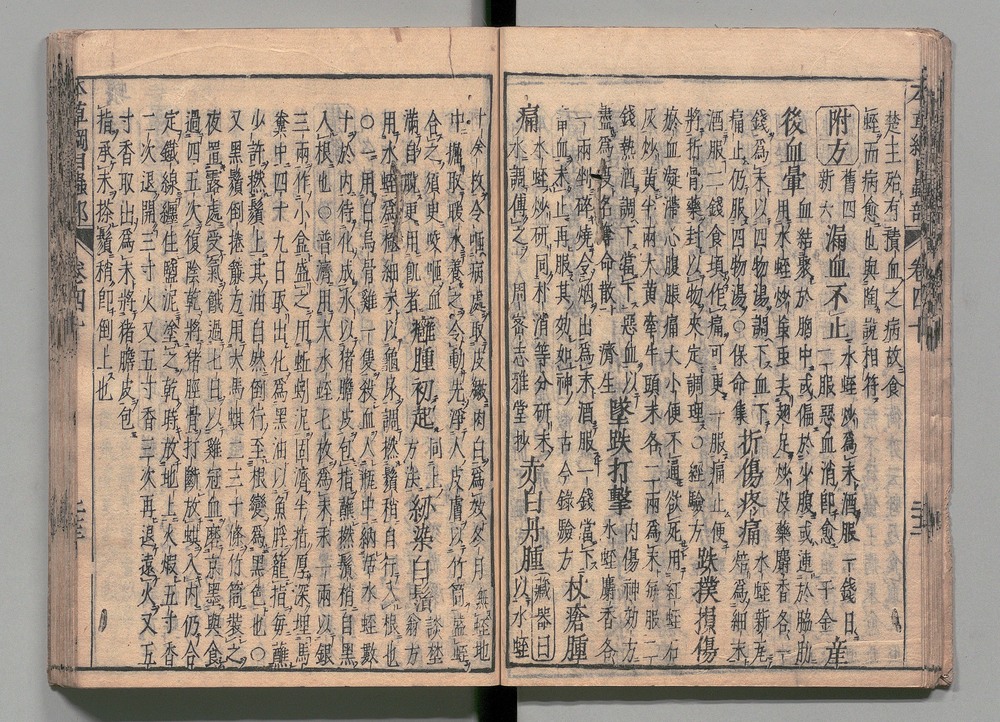 楚王殆有積血之病故食
蛭而病愈也與陶說相符
附方 舊四新六 漏血不止 水蛭炒爲末酒服一錢日二服惡血消卽愈 千金 産
後血暈 血結聚於胸中或偏於少腹或連於脇肋用水蛭炒䖟蟲去翅足炒没藥麝香各一
錢爲末以四物湯調下血下痛止仍服四物湯○保命集 折傷疼痛 水蛭新瓦焙爲細末
酒服二錢食頃作痛可更一服痛止便將折骨藥封以物夾定調理○經驗方 跌撲損傷
瘀血凝滯心腹脹痛大小便不通欲死用紅蛭石灰炒黃半兩大黃牽牛頭末各二兩爲末每服二
錢熱酒調下當下惡血以盡爲度名奪命散 濟生 墜跌打擊 内傷神効方水蛭麝香各
一兩剉碎燒令烟出爲末酒服一錢當下畜血未止再服其效如神 古今錄驗方 杖瘡腫
痛 水蛭炒研同朴消等分研末水調傅之 周密志雅堂抄 赤白丹腫 藏器曰以水蛭
十餘枚令咂病處取皮皺肉白爲效冬月無蛭地
中掘取暖水養之令動先淨人皮膚以竹筒盛蛭
合之須臾咬咂血滿自脫更用飢者 癰腫初起 同上方法 紉染白鬚 談埜翁方
用水蛭爲極細末以龜尿調撚鬚梢自行入根也○一用白烏骨雞一隻殺血入瓶中納活水蛭數
十於內待化成水以猪膽皮包指蘸撚鬚梢自黑入根也○普濟用大水蛭七枚爲末汞一兩以銀
三兩作小盒盛之用蚯蚓泥固濟半指厚深埋馬糞中四十九日取出化爲黑油以魚脬籠指每蘸
少許撚鬚上其油自然倒行至根變爲黑色也○又黑鬚倒捲簾方用大馬蜞二三十條竹筒裝之
夜置露處受氣餓過七日以雞冠血磨京墨與食過四五次復陰乾將猪脛骨打斷放蜞入內仍合
定鐵線纏住鹽泥塗之乾時放地上火煆五寸香二次退開三寸火又五寸香三次再退遠火又五
寸香取出爲末將猪膽皮包指承末搽鬚稍卽倒上也